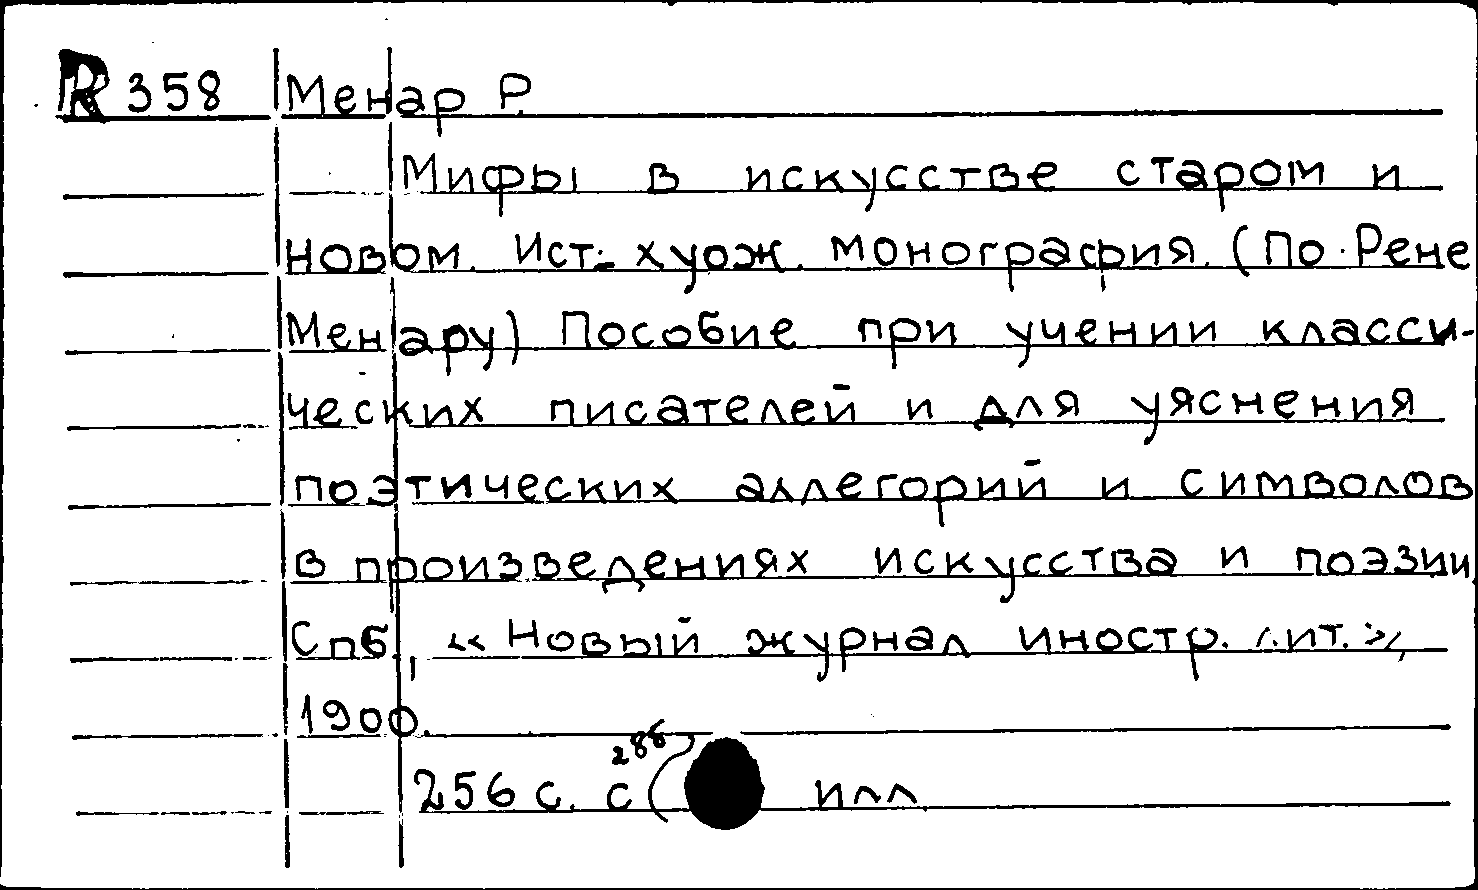 R 358 Менар Р.
Мифы в искусстве старом и
новом. Ист.-хуож. монография. (По Рене
Менару) Пособие при учении класси-
ческих писателей и для уяснения
поэтических аллегорий и символов
в произведениях искусства и поэзии
Спб., «Новый журнал иностр. лит.»,
1900.
256 с. с 286 илл